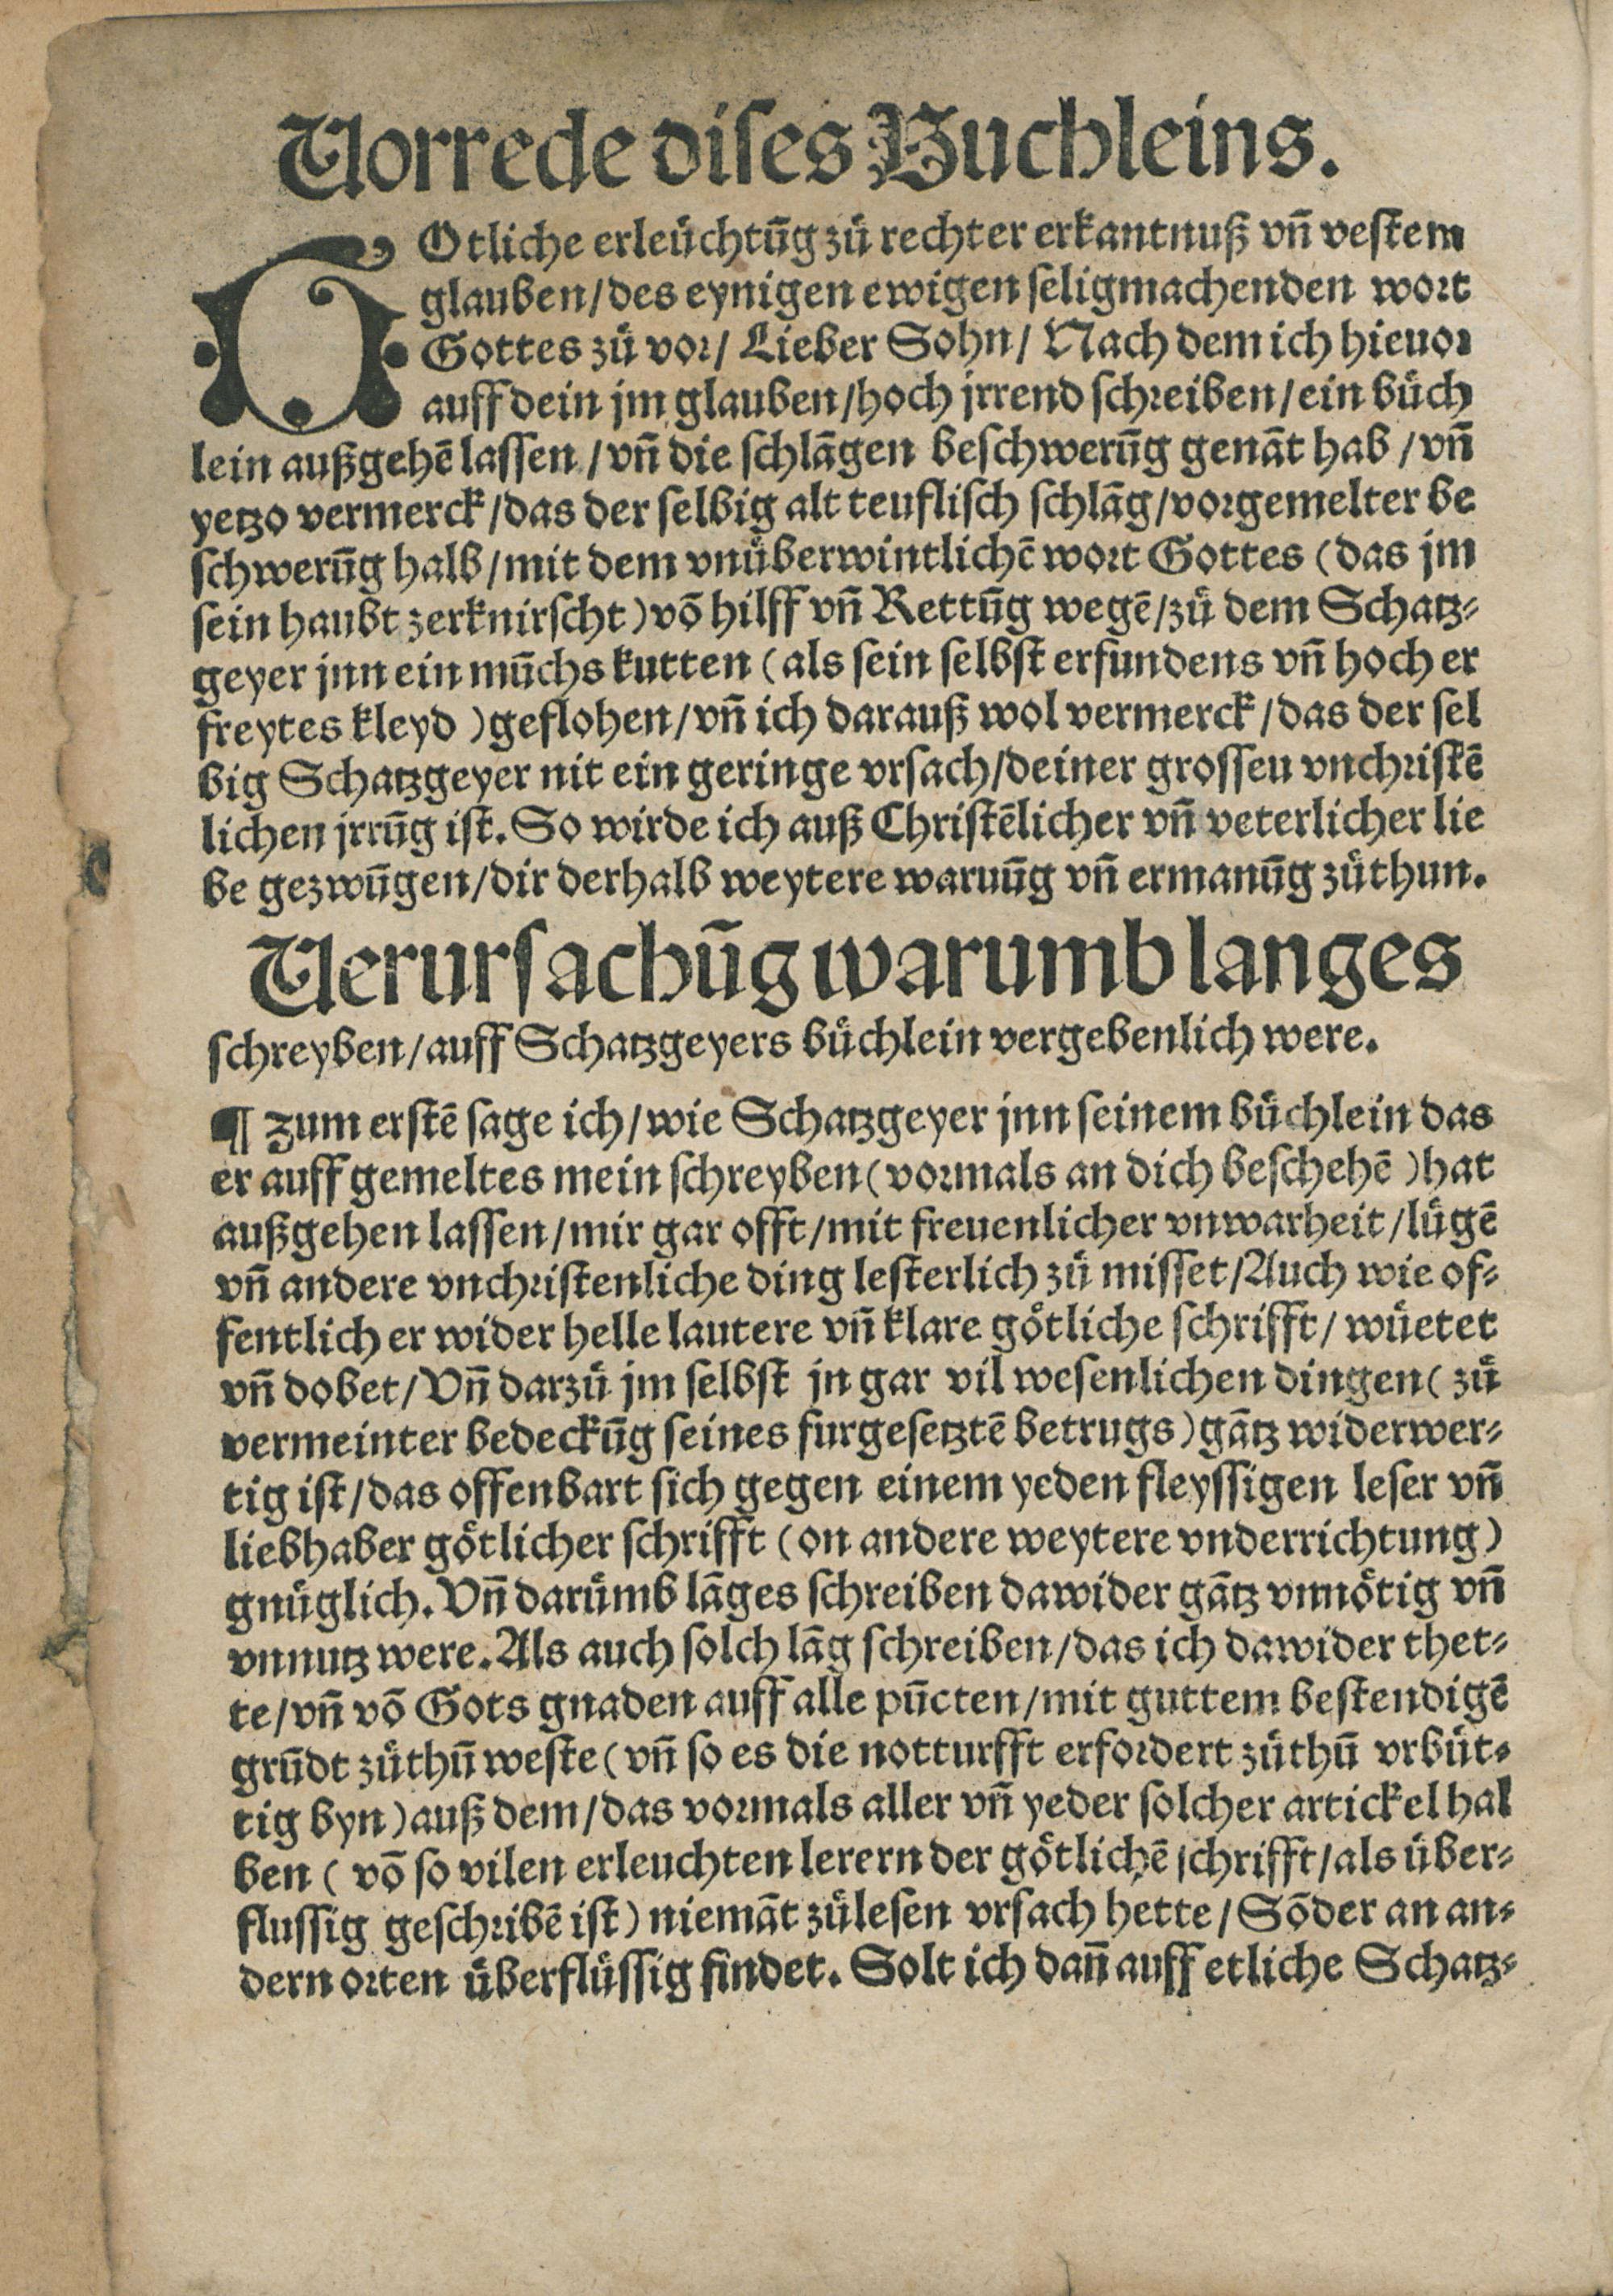 Vorrede dises Buchleins.
GOtliche erleüchtūg zů rechter erkantnuß vn̄ vestem
glauben/des eynigen ewigen seligmachenden wort
Gottes zů vor/ Lieber Sohn/ Nach dem ich hieuor
auff dein jm glauben/hoch jrrend schreiben/ein bůch
lein außgehē lassen/vn̄ die schlāgen beschwerūg genāt hab/vn̄
yetzo vermerck/das der selbig alt teuflisch schlāg/vorgemelter be
schwerūg halb/mit dem vnüberwintlichē wort Gottes (das jm
sein haubt zerknirscht) vō hilff vn̄ Rettūg wegē/zů dem Schatz⸗
geyer jnn ein mūchs kutten (als sein selbst erfundens vn̄ hoch er
freytes kleyd) geflohen/vn̄ ich darauß wol vermerck/das der sel
big Schatzgeyer nit ein geringe vrsach/deiner grosseu vnchristē
lichen jrrūg ist. So wirde ich auß Christēlicher vn̄ veterlicher lie
be gezwūgen/dir derhalb weytere waruūg vn̄ ermanūg zůthun.
Verursachūg warumb langes
schreyben/auff Schatzgeyers bůchlein vergebenlich were.
¶ Zum erstē sage ich/wie Schatzgeyer jnn seinem bůchlein das
er auff gemeltes mein schreyben (vormals an dich beschehē) hat
außgehen lassen/mir gar offt/mit freuenlicher vnwarheit/lůgē
vn̄ andere vnchristenliche ding lesterlich zů misset/Auch wie of⸗
fentlich er wider helle lautere vn̄ klare gǒtliche schrifft/ wůetet
vn̄ dobet/Vn̄ darzů jm selbst jn gar vil wesenlichen dingen (zů
vermeinter bedeckūg seines furgesetztē betrugs) gātz widerwer⸗
tig ist/das offenbart sich gegen einem yeden fleyssigen leser vn̄
liebhaber gǒtlicher schrifft (on andere weytere vnderrichtung)
gnůglich. Vn̄ darůmb lāges schreiben dawider gātz vnnǒtig vn̄
vnnutz were. Als auch solch lāg schreiben/das ich dawider thet⸗
te/vn̄ vō Gots gnaden auff alle pūcten/mit guttem bestendigē
grūdt zůthū weste (vn̄ so es die notturfft erfordert zůthū vrbůt⸗
tig byn) auß dem/das vormals aller vn̄ yeder solcher artickel hal
ben (vō so vilen erleuchten lerern der gǒtlichē schrifft/als über⸗
flussig geschribē ist) niemāt zůlesen vrsach hette/Sōder an an⸗
dern orten überflüssig findet. Solt ich dan̄ auff etliche Schatz⸗